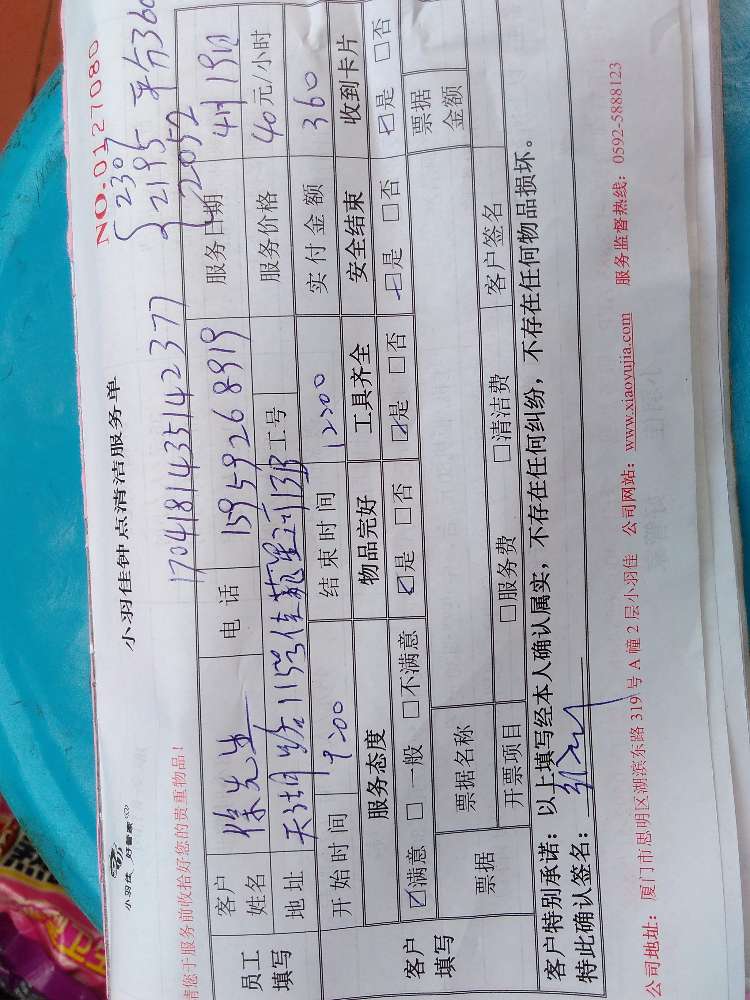 小羽佳 好管家
小羽佳钟点清洁服务单
NO.0127080
请您于服务前收拾好您的贵重物品!
1704181435142377
2307
2195 平分360
2052
员工填写
客户姓名 徐先生 电话 15959268919 服务日期 4月19日
地址 天湖路115号佳 13B 工号 服务价格 40元/小时
开始时间 9:00 结束时间 12:00 实付金额 360
客户填写
服务态度 物品完好 工具齐全 安全结束 收到卡片
☑满意 □一般 □不满意 ☑是 □否 ☑是 □否 ☑是 □否 ☑是 □否
票据 票据名称 票据金额
开票项目 □服务费 □清洁费 客户签名
客户特别承诺:以上填写经本人确认属实,不存在任何纠纷,不存在任何物品损坏。
特此确认签名:
公司地址:厦门市思明区湖滨东路319号A幢2层小羽佳 公司网站:www.xiaoyujia.com 服务监督热线:0592-5888123